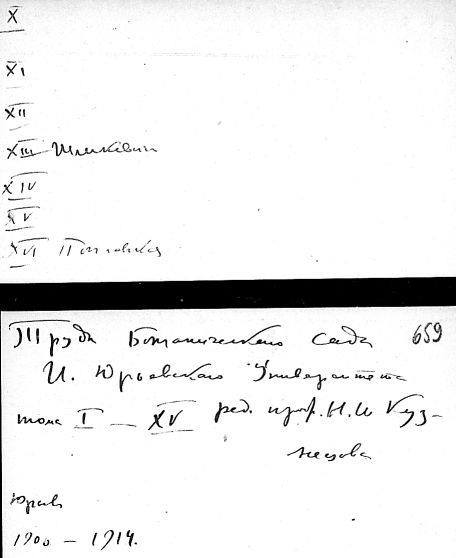 X
XI
XII
XIII
XIV
XV
XVI
Труды Ботанического сада 659
И. Юрьевского Университета
тома I — XV ред. проф. Н. И Куз-
нецова
Юрьев
1900 — 1914.